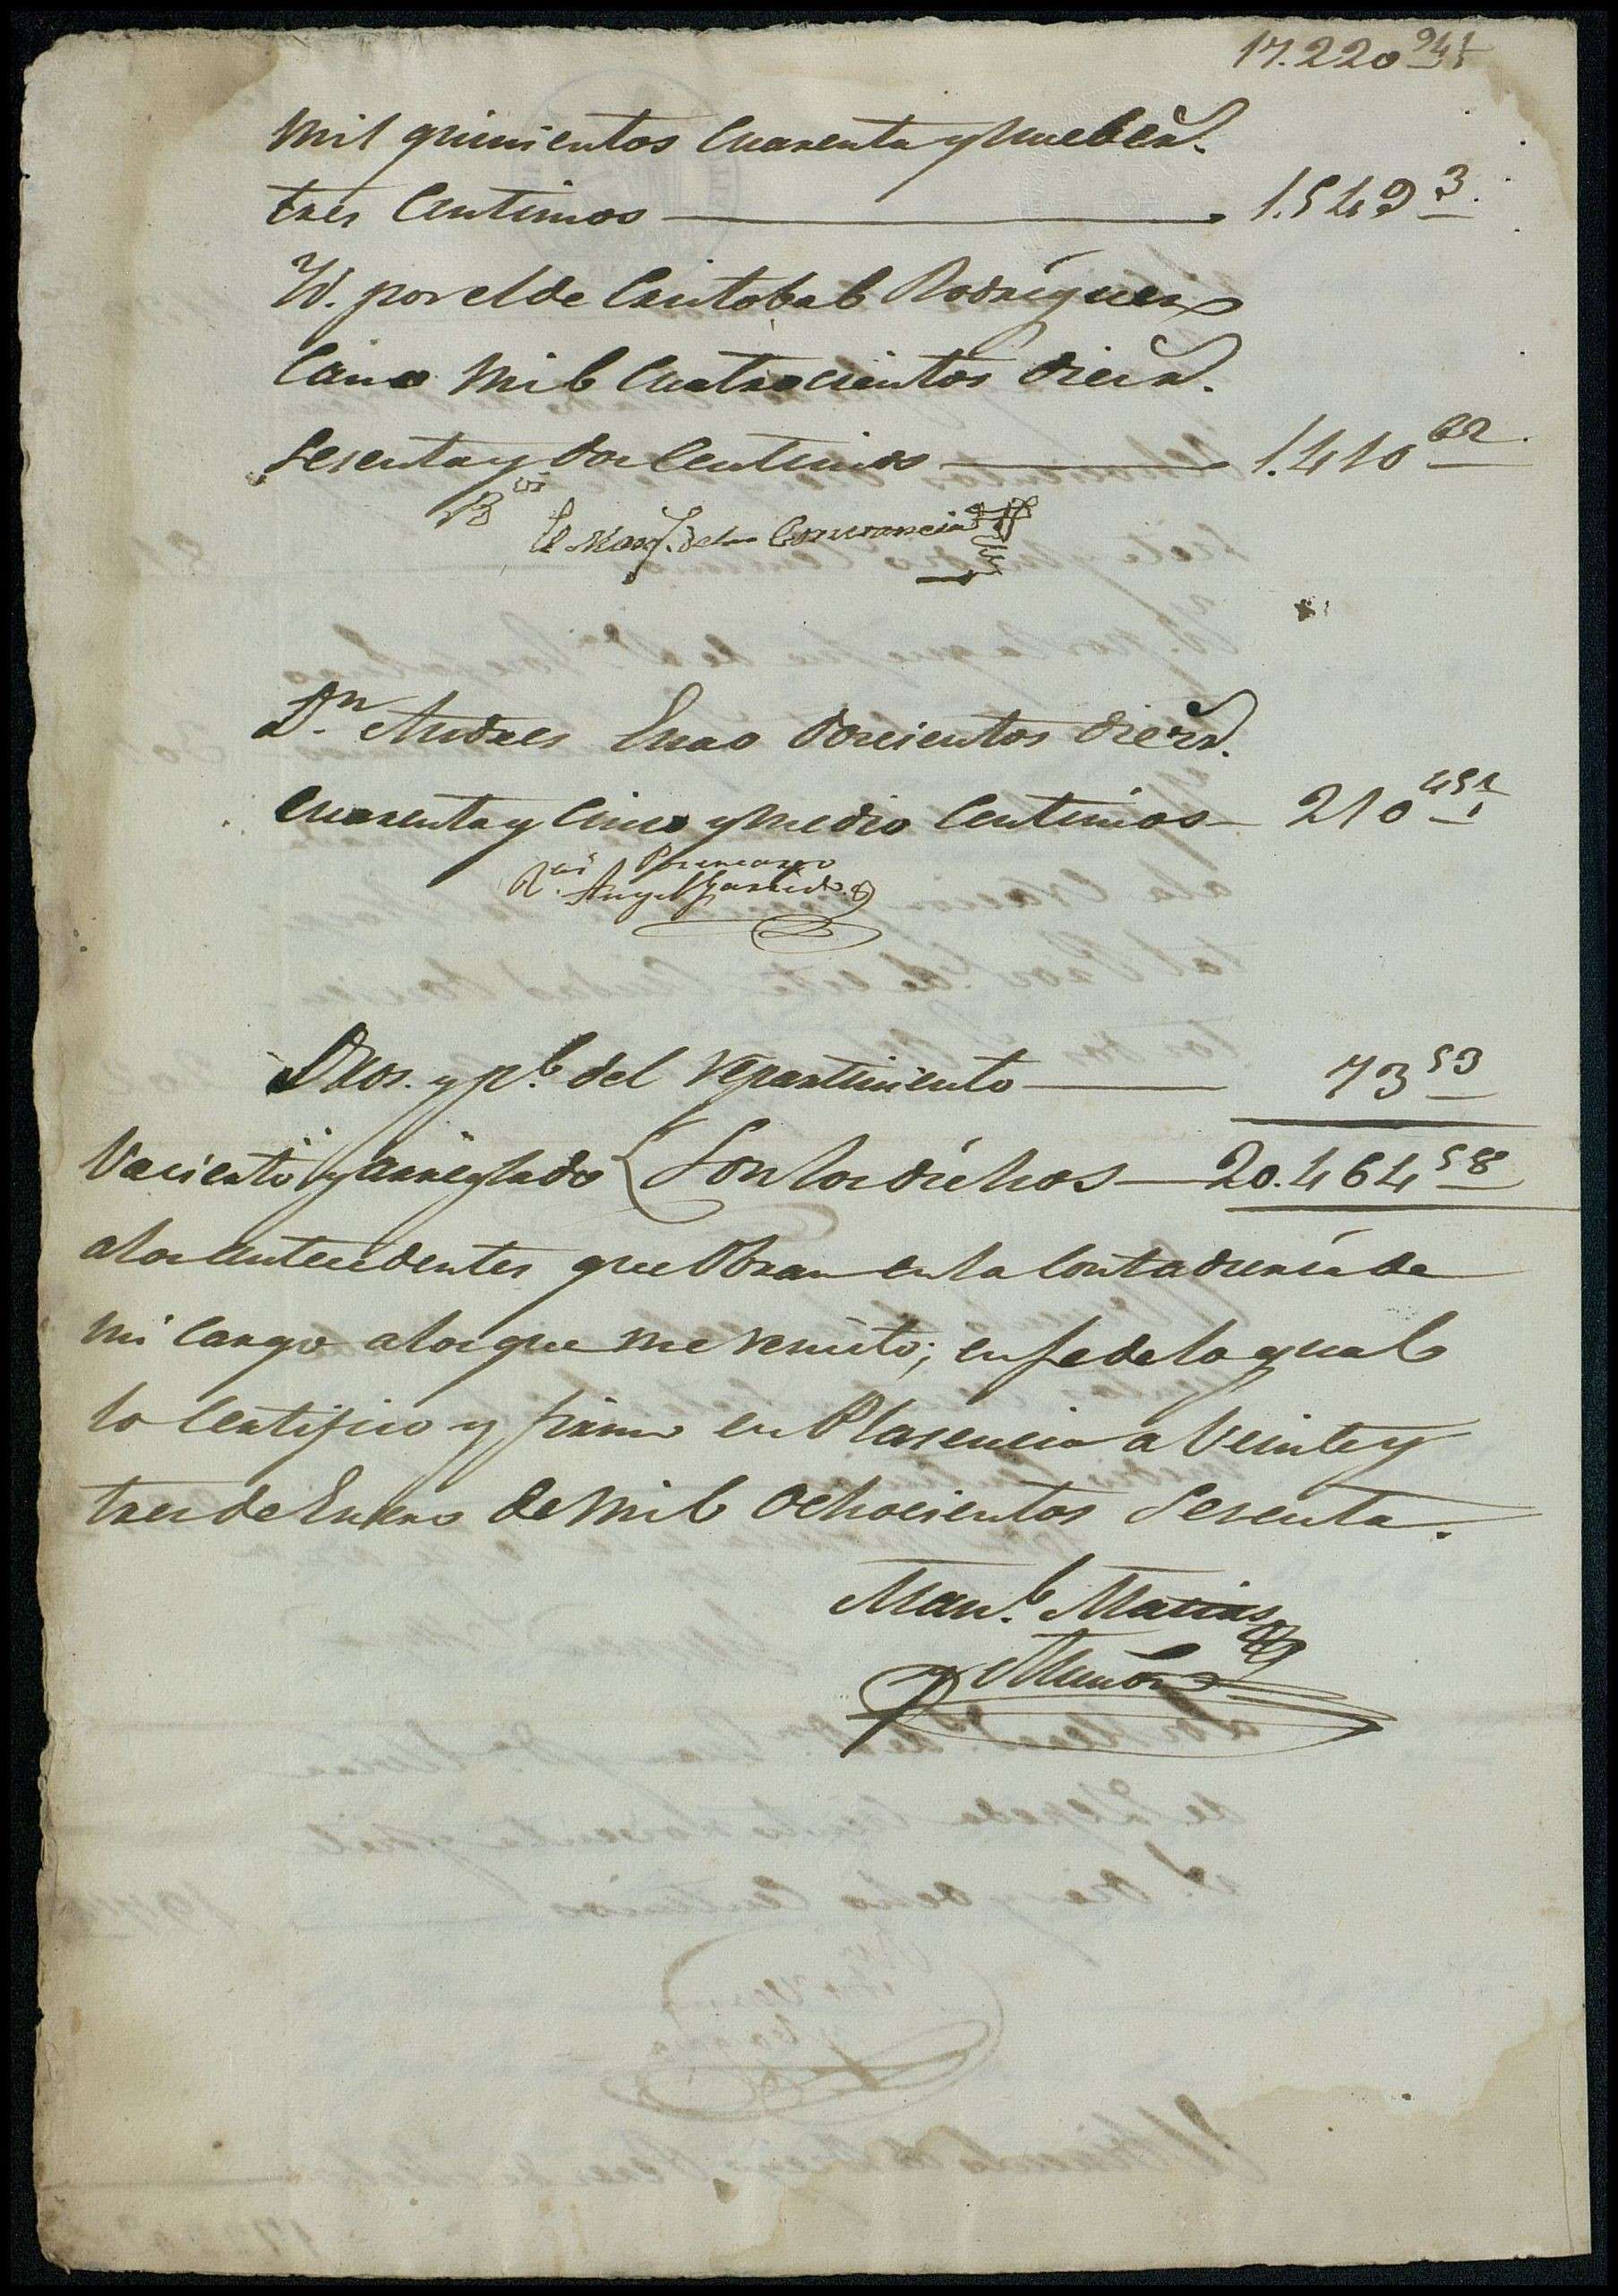 17.220 94½
Mil quinientos cuarenta y nuebe rs.
tres Centimos — 1.549 3
Yd. por el de Cristobal Rodriguez
Mil Cuatrocientos diez rs.
sesenta y dos Centimos — 1.410 62
Rví
El Marq.s de la Constancia
Dn. Andres Enao doscientos diez rs.
Cuarenta y Cinco y medio Centimos — 210 45½
Rví Por encargo
Angel Garrido
Dros. y pl. del repartimiento — 73 53
Va cierto y arreglado Son los dichos — 20.464 58
a los antecedentes que obran en la Contaduría de
mi cargo a los que me remito; en fe de lo qual
lo Certifico y firmo en Plasencia a Veinte y
tres de Enero de mil ochocientos sesenta.
Manl. Matias
Muñoz